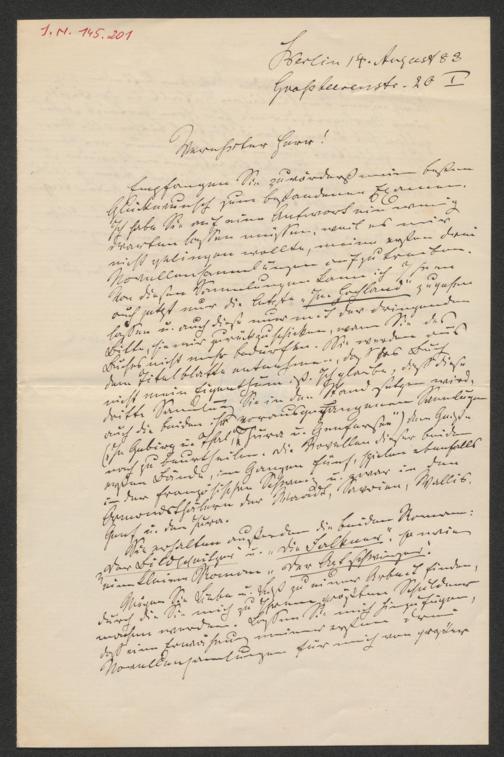 I.N. 145.201
Berlin 14. August 88
Großbeerenstr. 20 I
Verehrter Herr!
Empfangen Sie zuvörderst meinen besten
Glückwunsch zum bestandenen Examen.
Ich habe Sie auf eine Antwort ein wenig
warten lassen müssen, weil es mir
nicht gelingen wollte, meine ersten drei
Novellensammlungen aufzutreiben.
Von diesen Sammlungen kann ich Ihnen
auch jetzt nur die letzte „Im Hochland" zugehen
lassen u. auch dies nur mit der dringenden
Bitte, sie mir zurückzuschicken, wenn Sie des
Buches nicht mehr bedürfen. Sie werden aus
dem Titelblatte entnehmen, daß das Buch
nicht mein Eigenthum ist. Ich glaube, daß diese
dritte Sammlung Sie in den Stand setzen wird,
auch die beiden ihr vorausgegangenen Sammlungen
(„Im Gebirg u. Thal", „Jura u. Genfersee") dem Geiste
nach zu beurtheilen. Die Novellen dieser beiden
ersten Bände, im Ganzen fünf, spielen ebenfalls
in der französischen Schweiz u. zwar in den
Ormondsthälern der Waadt, Savoien, Wallis,
Genf u. dem Jura.
Sie erhalten außerdem die beiden Romane:
„Der Bildschnitzer" u. „Die Falkner", so wie
einen kleinen Roman „Der Entschwinger".
Mögen Sie Liebe u. Lust zu einer Arbeit finden,
durch die Sie mich zu Ihrem größten Schuldner
machen werden. Lassen Sie mich hinzufügen,
daß eine Erwähnung meiner ersten drei
Novellensammlungen für mich von großer